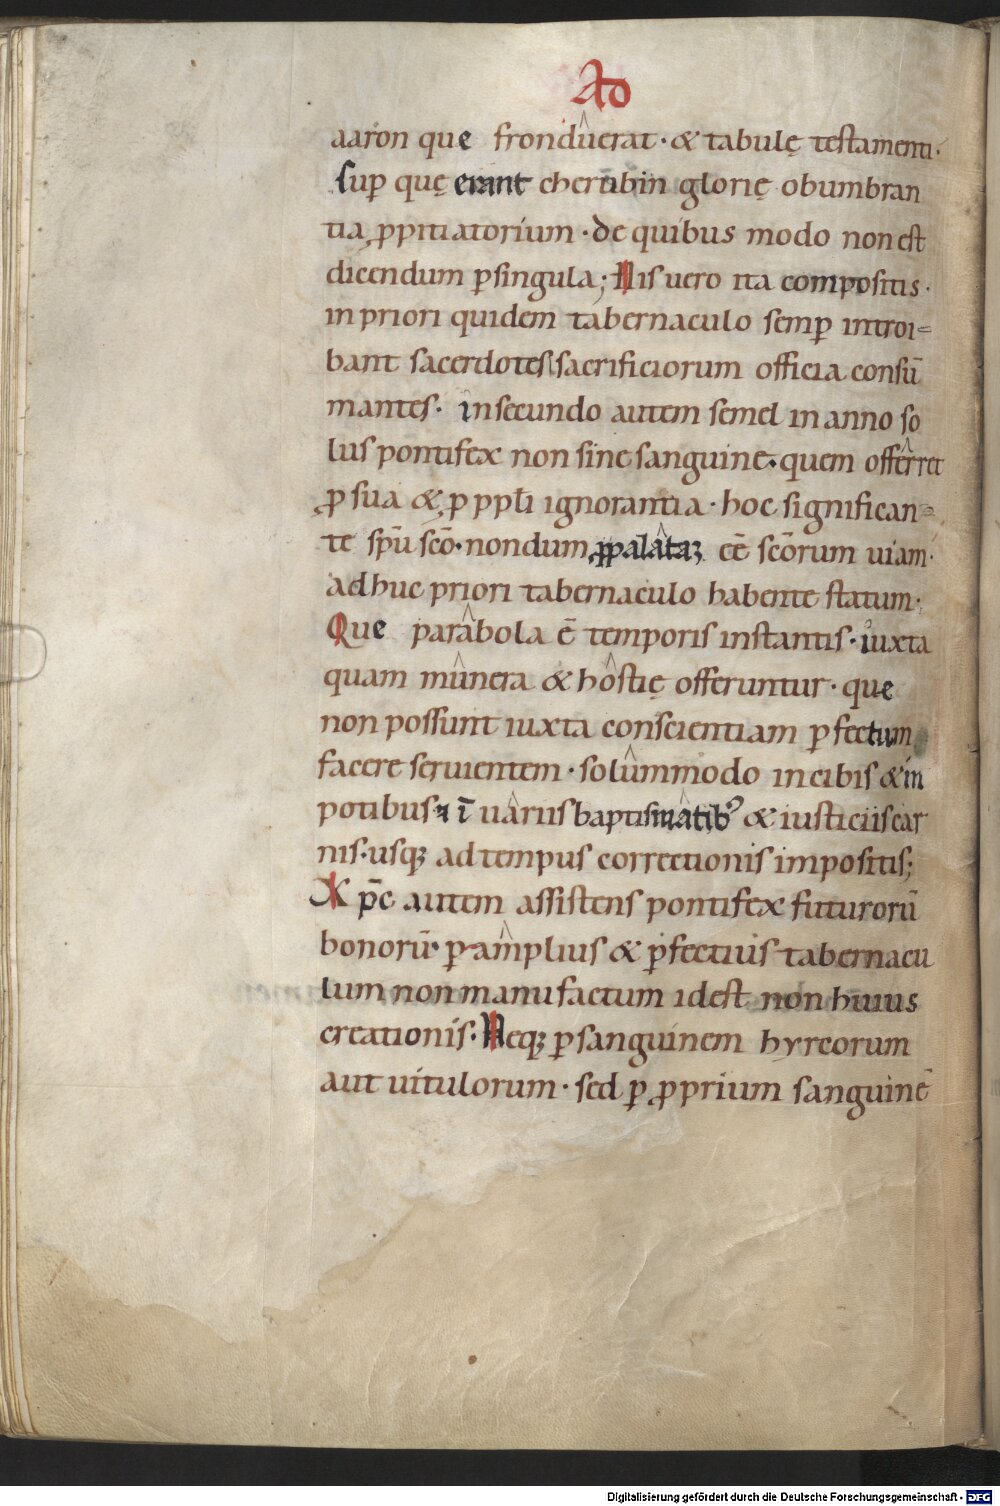 Ad
aaron que fronduerat · & tabulę testamenti ·
sup̱ quę erant cherubin glorię obumbran
tia ꝓpitiatorium · de quibus modo non est
dicendum ꝑ singula; His uero ita compositis ·
in priori quidem tabernaculo semꝑ introi=
bant sacerdotes sacrificiorum officia consū
mantes · in secundo autem semel in anno so
lus pontifex non sine sanguine · quem offerret
ꝓ sua & ꝓ ppłi ignorantia · hoc significan=
te spū scō · nondum ꝓpalataꝫ eē scōrum uiam ·
adhuc priori tabernaculo habente statum ·
Que parabola ē temporis instantis · iuxta
quam munera & hostię offeruntur · que
non possunt iuxta conscientiam ꝑfectum
facere seruientem · solummodo in cibis & in
potibus · ⁊ ī uariis baptismatibꝰ & iusticiis car
nis · usqꝫ ad tempus correctionis impositis;
Xp̄c autem assistens pontifex futurorū
bonorū · ꝑ amplius & ꝑfectius tabernacu
lum non manufactum idest non huius
creationis · Neqꝫ ꝑ sanguinem hyrcorum
aut uitulorum · sed ꝑ ꝓprium sanguinē
Digitalisierung gefördert durch die Deutsche Forschungsgemeinschaft - DFG